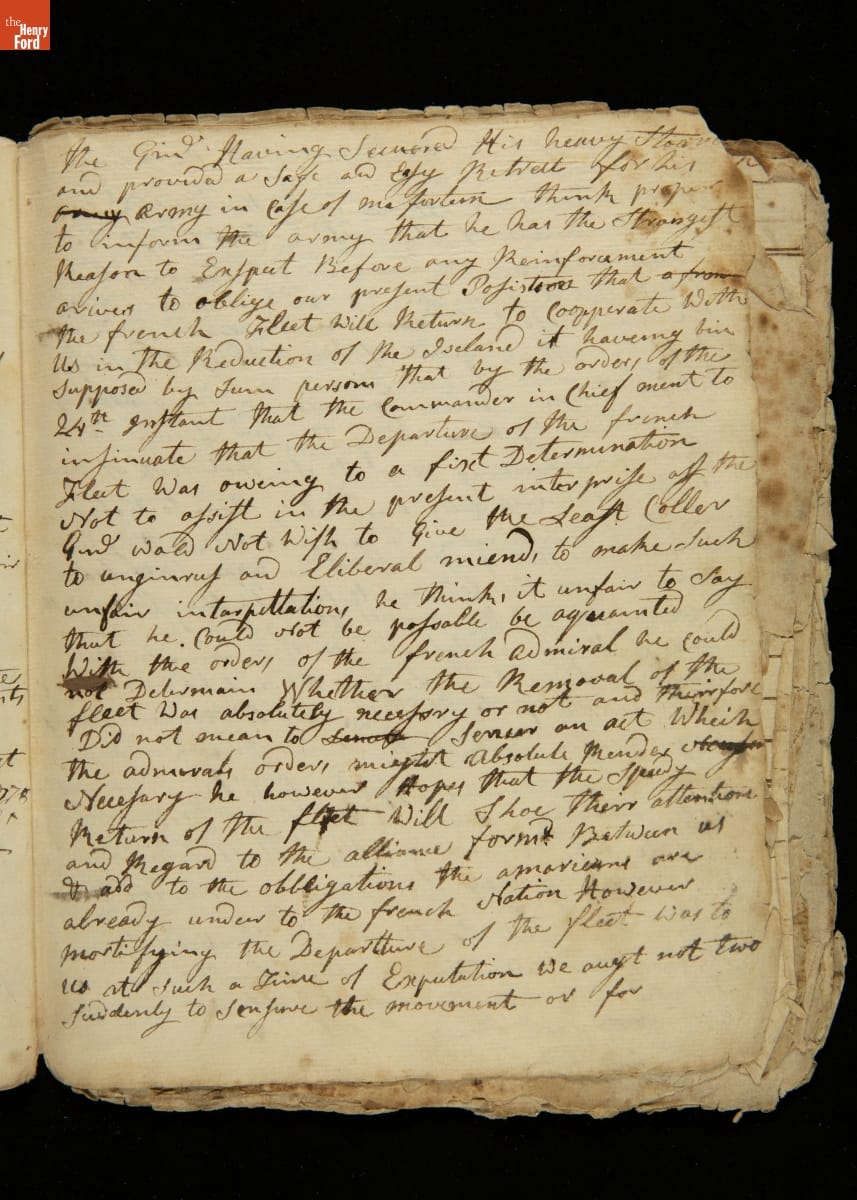 the Henry Ford
the Gin.l Having Secured His heavy Stores
and provided a Safe and Esy Retrett for his
army army in Case of misfortun think proper
to inform the army that he has the Strangest
Reason to Expect Before any Reinforcement
arives to oblige our present Posistion that a fren
the french Fleet will Return to Cooperate With
Us in the Reduction of the Iseland it haveing bin
Supposed by Sum persons that by the orders of the
24th Instant that the Commander in Chief ment to
insinuate that the Departure of the french
Fleet was owing to a fixt Determination
Not to assist in the present interprise ass the
Gin.l wold Not Wish to Give the Least Coller
to unginrus and Eliberal miends to make Such
unfair intarpittations he thinks it unfair to Say
that he Could Not be possable be aquainted
With the orders of the french admiral he could
not Determain Whether the Removal of the
fleet Was absolutely necessry or not and therrfore
Did not mean to Sensur an act Which
the admirals orders mieght absolute Render
Necesary he however Hopes that the Speedy
Return of the fleet Will Shoe therr attention
and Regard to the alliance formd Between us
& add to the obbligations the amaricans are
already under to the french Nation However
mortifying the Departure of the fleet was to
us at Such a Time of Expectation we augt not two
Suddenly to Sensure the movement or for